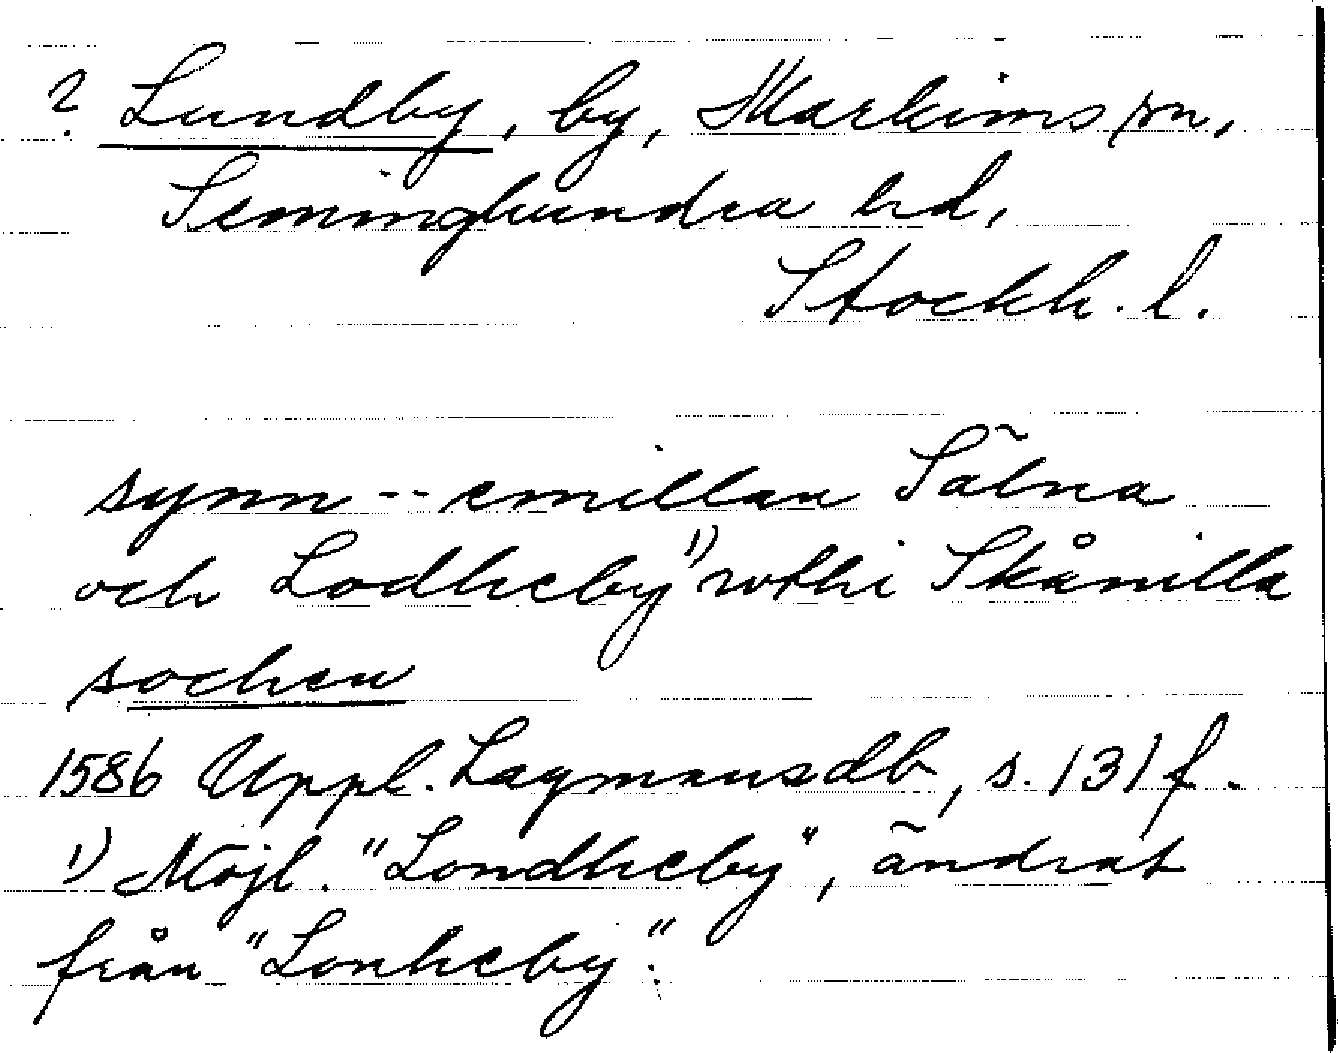 ? Lundby, by, Markims sn,
Seminghundra hd,
Stockh. l.
synn -- emillan Sälna
och Lodheby¹⁾ wthi Skånilla
sochen
1586 Uppl. Lagmansdb, s. 131 f.
¹⁾ Möjl. "Londheby", ändrat
från "Lonheby".